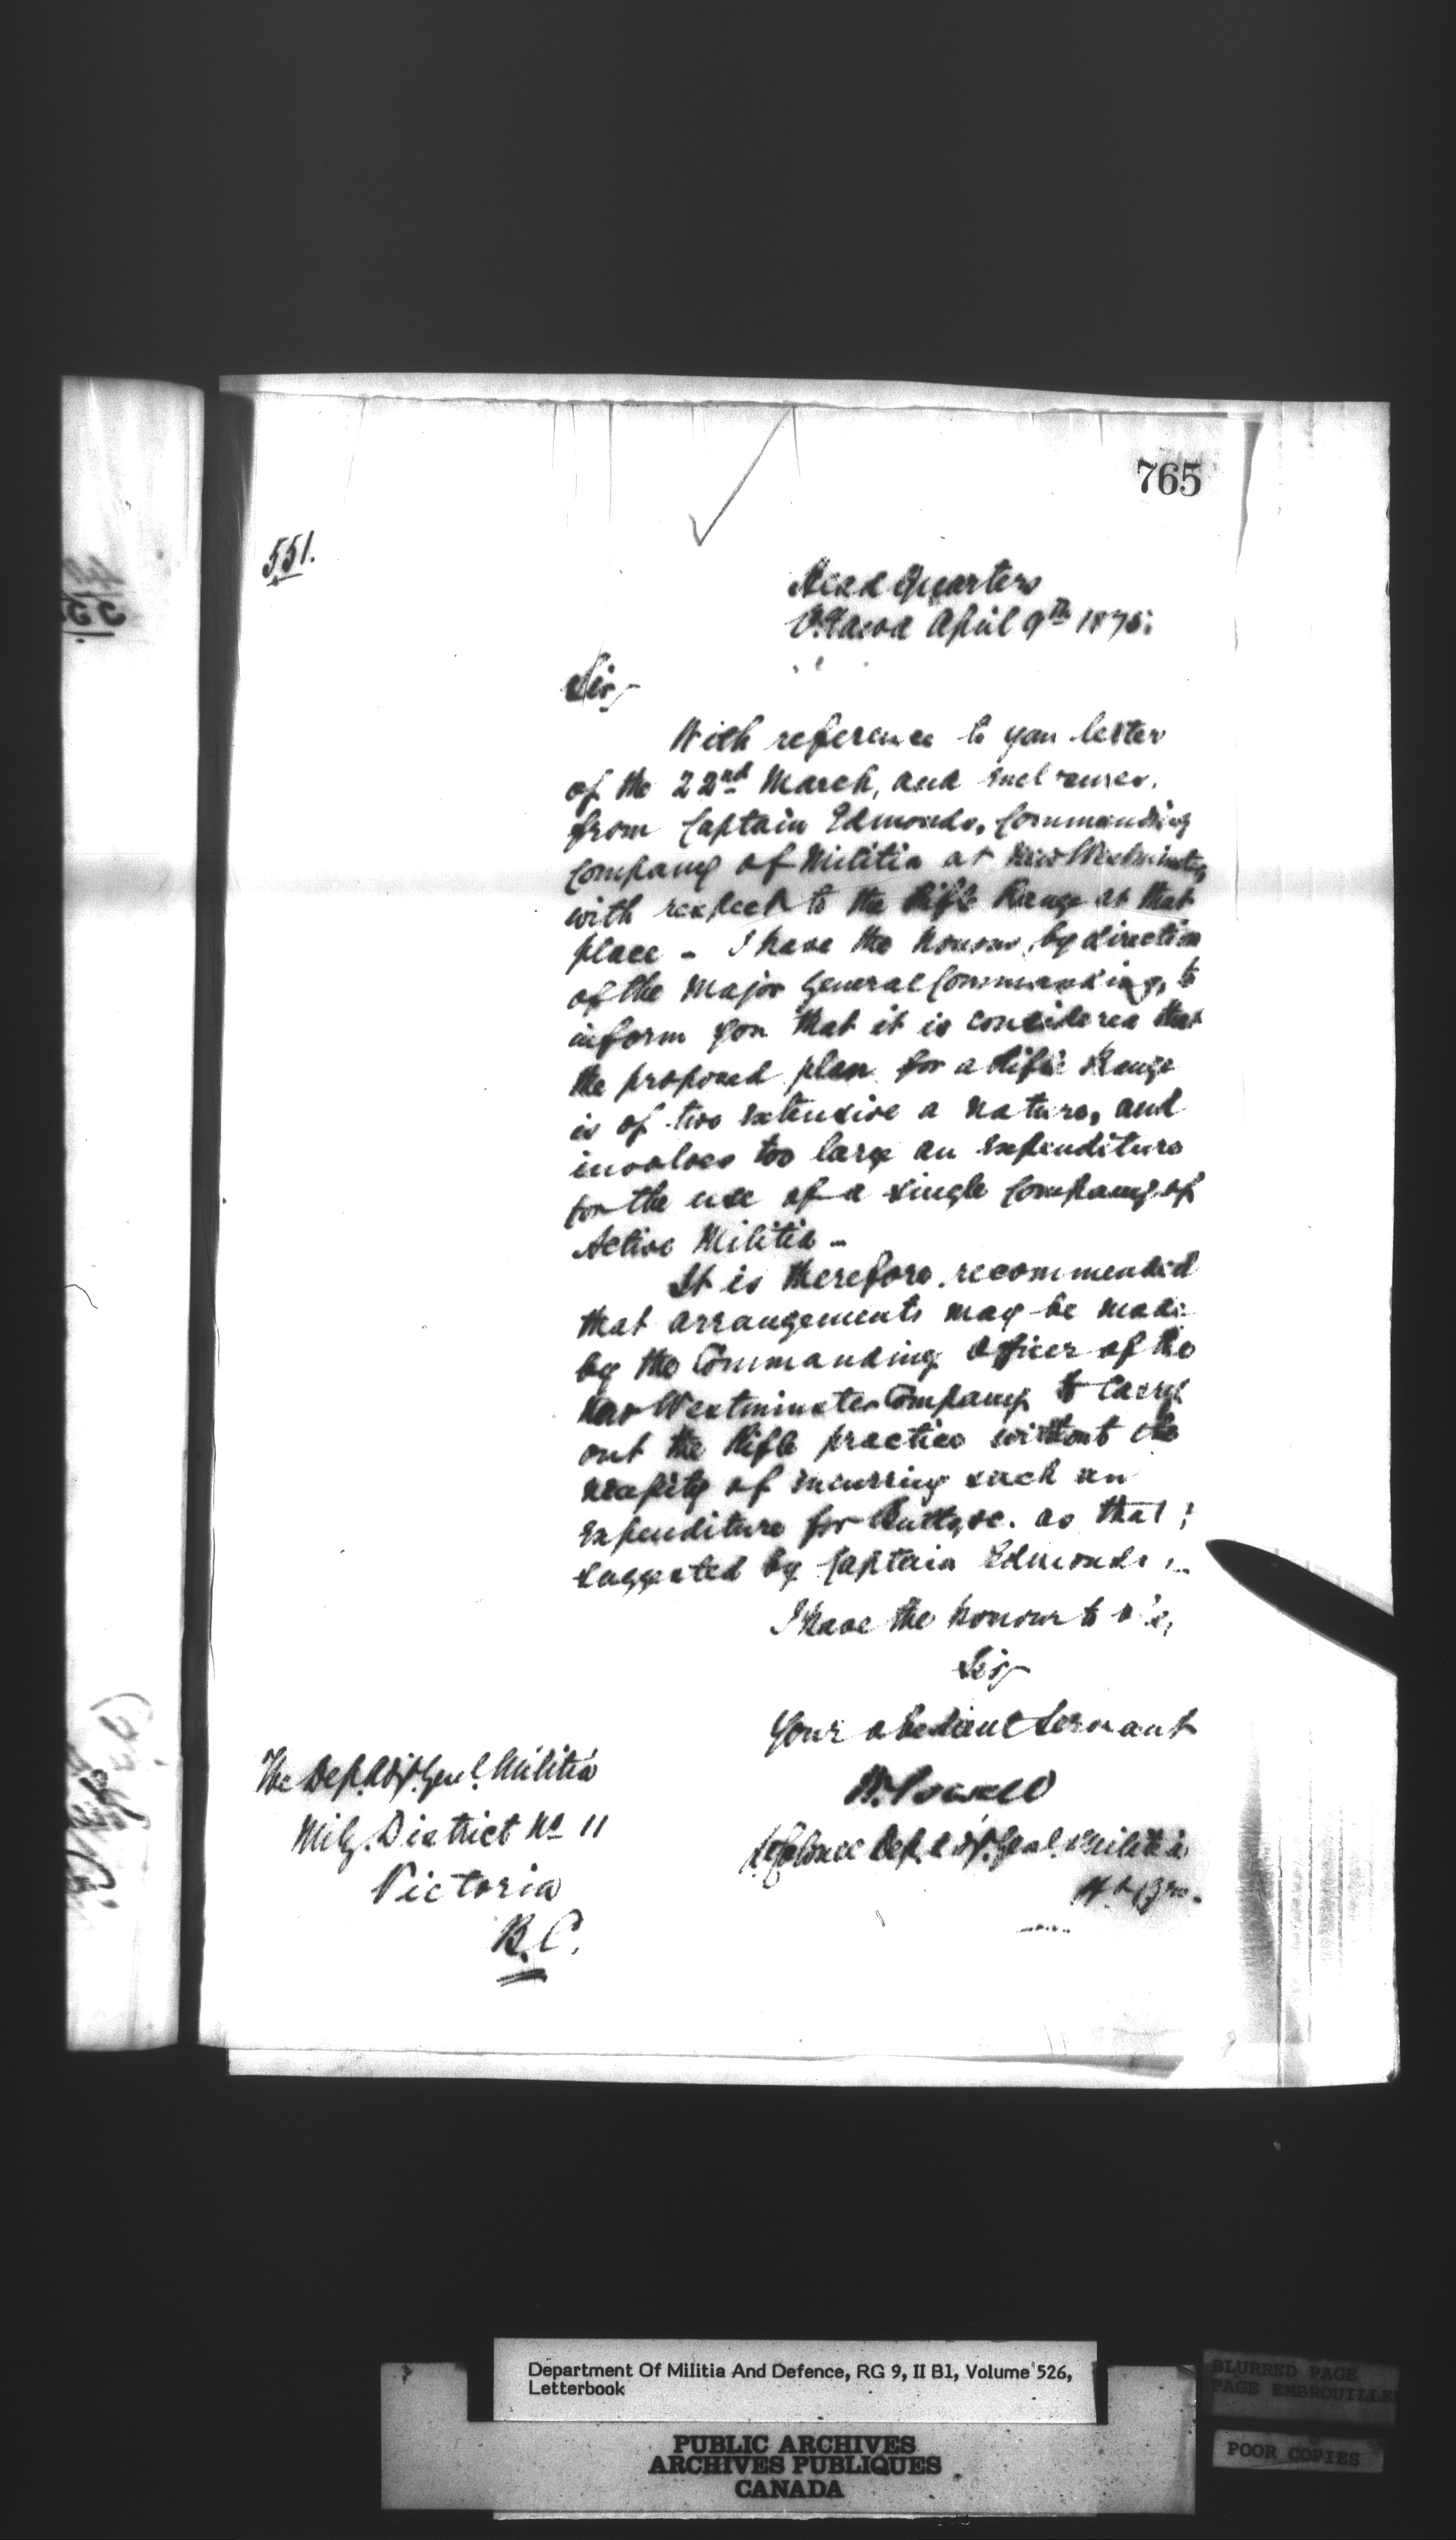 765
551.
Head Quarters
Ottawa April 9th 1875.
Sir,
With reference to your letter
of the 22nd March, and enclosures.
from Captain Edmonds, Commanding
Company of Militia at New Westminster,
with respect to the Rifle Range at that
place - I have the honour, by direction
of the Major General Commanding, to
inform you that it is considered that
the proposed plan for a Rifle Range
is of too extensive a nature, and
involves too large an expenditure
for the use of a single Company of
Active Militia -
It is therefore recommended
that arrangements may be made
by the Commanding Officer of the
New Westminster Company to carry
out the Rifle practice without the
necessity of incurring such an
expenditure for Butts, &c. as that
suggested by Captain Edmonds.
I have the honour to be,
Sir,
Your obedient Servant
W. Powell
Lt. Colonel Dep. Adjt. Genl. Militia
The Dep. Adjt. Genl. Militia
Mily. District No 11
Victoria
B.C.
Department Of Militia And Defence, RG 9, II B1, Volume 526,
Letterbook
PUBLIC ARCHIVES
ARCHIVES PUBLIQUES
CANADA
BLURRED PAGE
PAGE EMBROUILLE
POOR COPIES